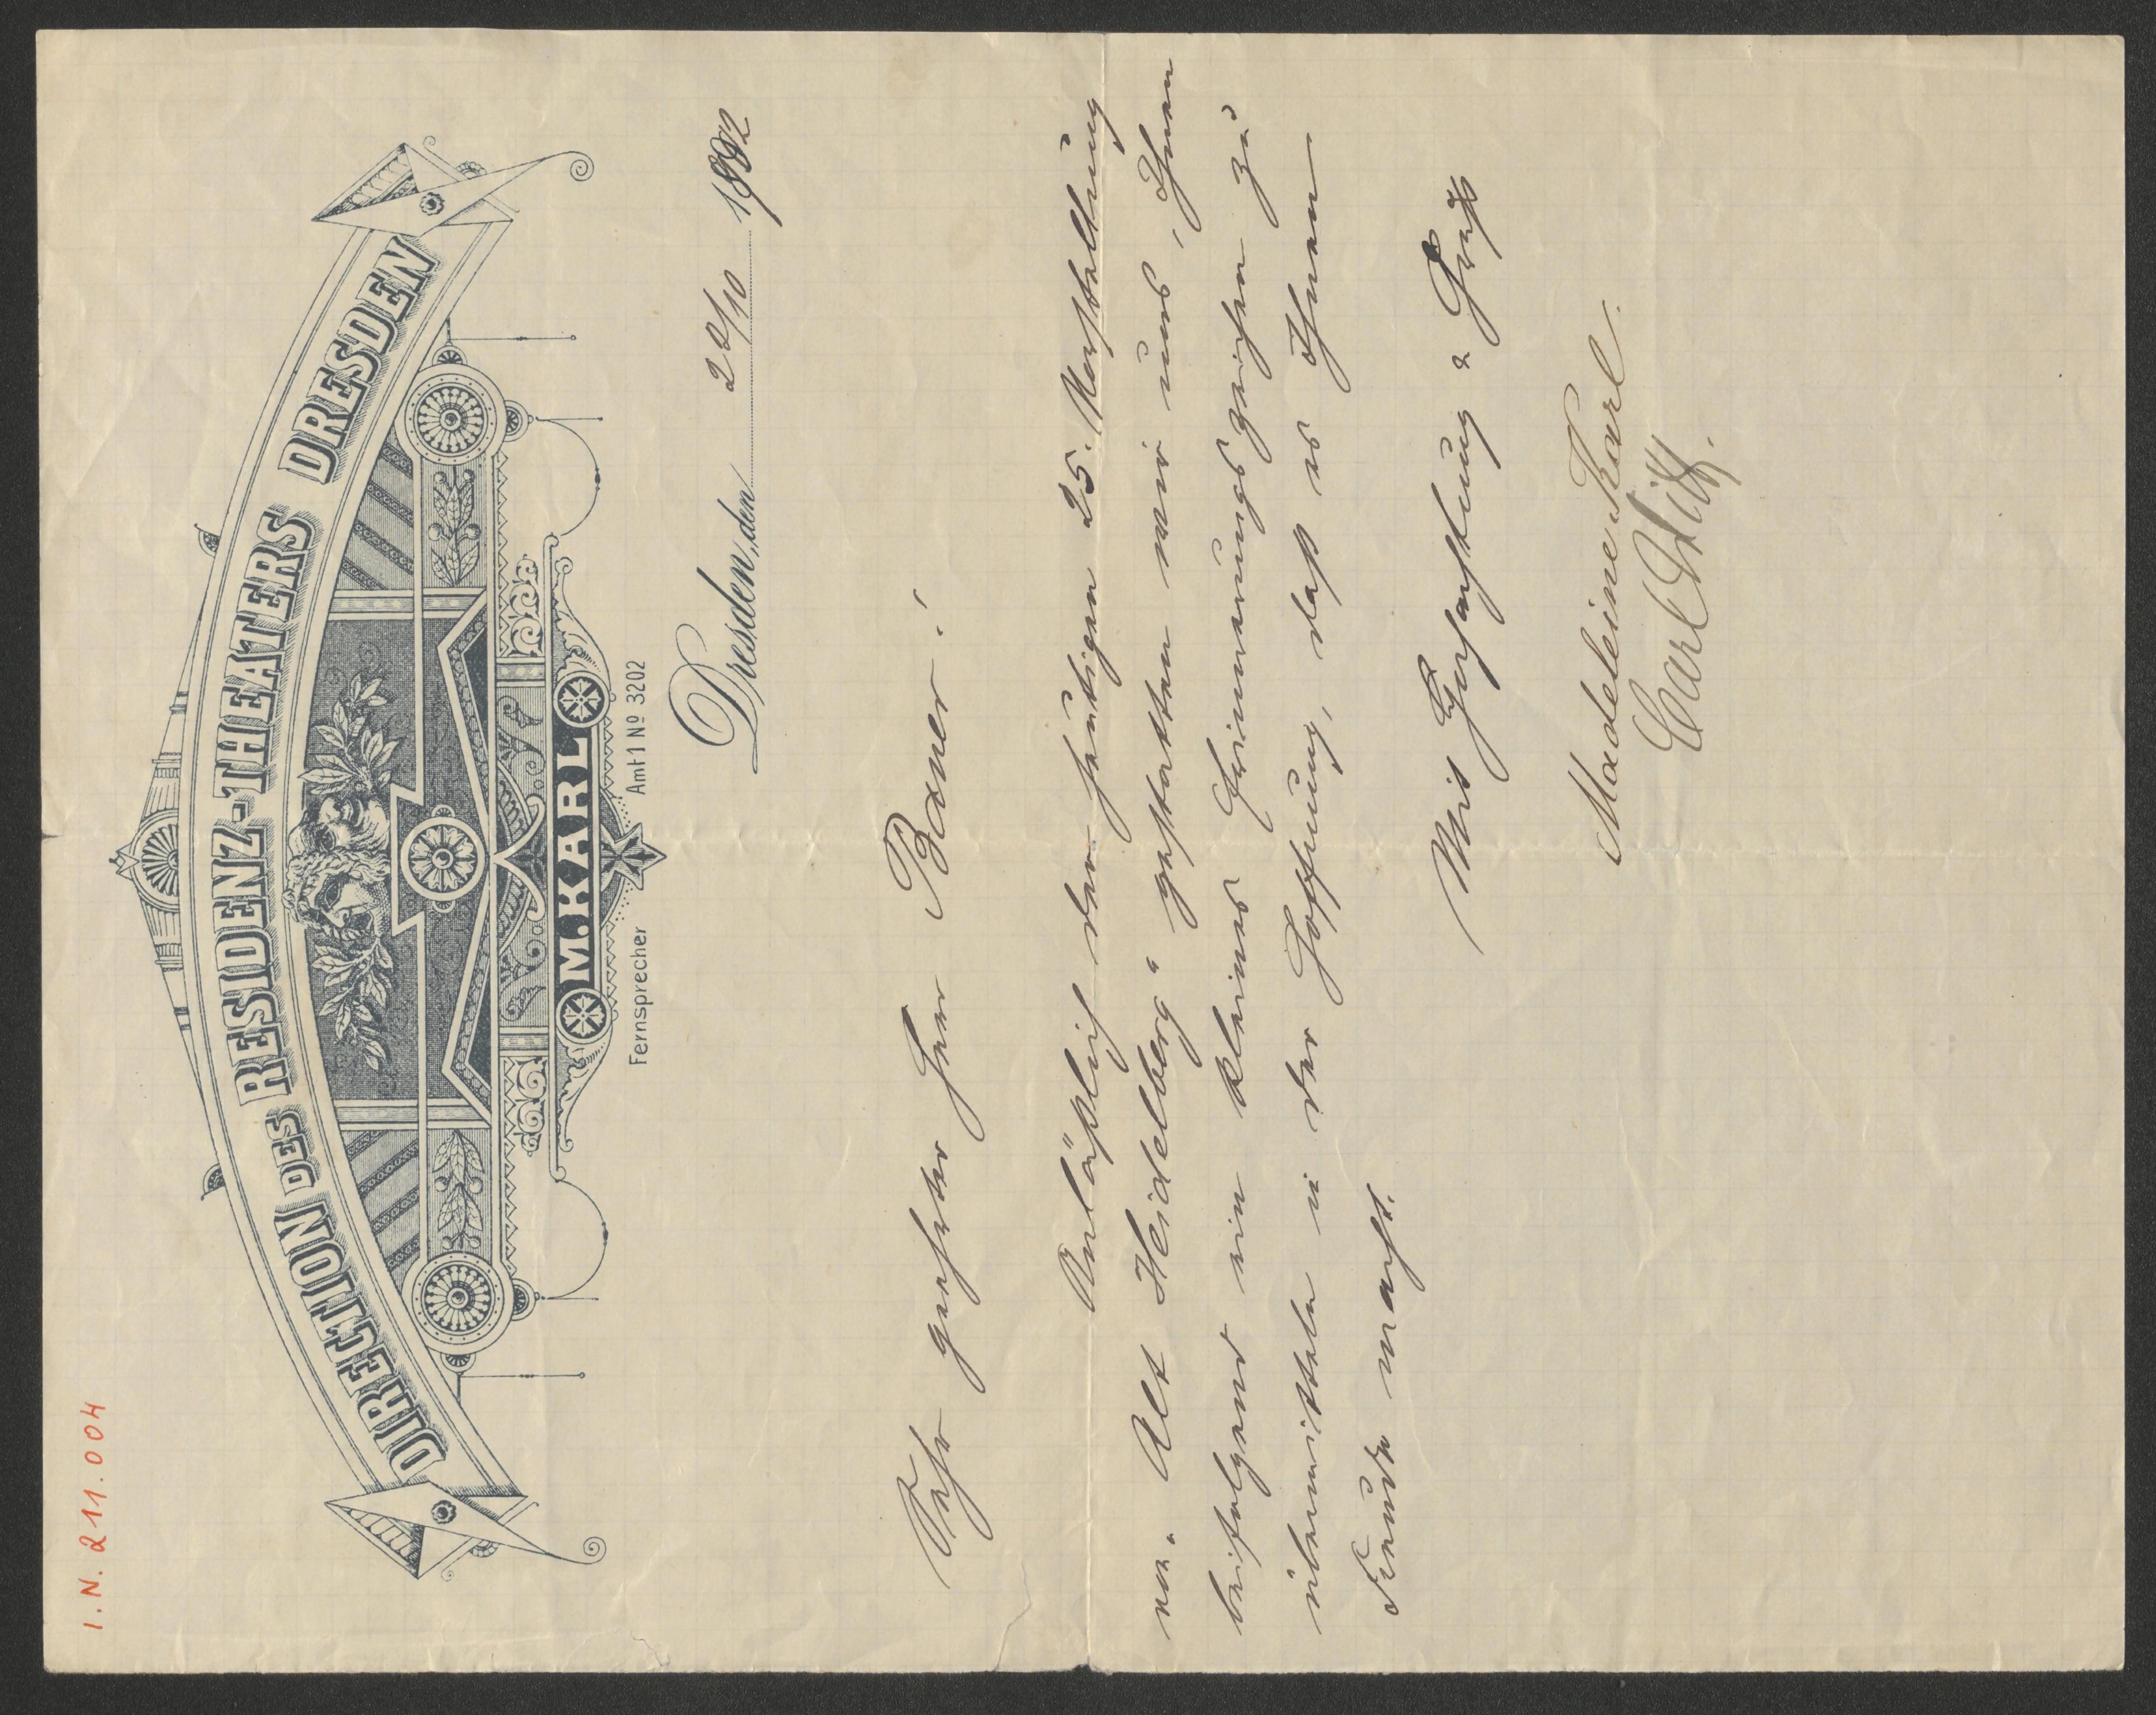 I. N. 211.004
DIRECTION DES RESIDENZ-THEATERS DRESDEN
M. KARL
Fernsprecher Amt 1 No 3202
Dresden, den 22/10 1902
Sehr geehrter Herr Bauer!
Anläßlich der heutigen 25. Vorstellung
von „Alt Heidelberg“ gestatten wir uns, Ihnen
beifolgend ein kleines Erinnerungszeichen zu
übermitteln in der Hoffnung, daß es Ihnen
Freude macht.
Mit Hochachtung & Gruß
Madeleine Karl.
Carl Witt.